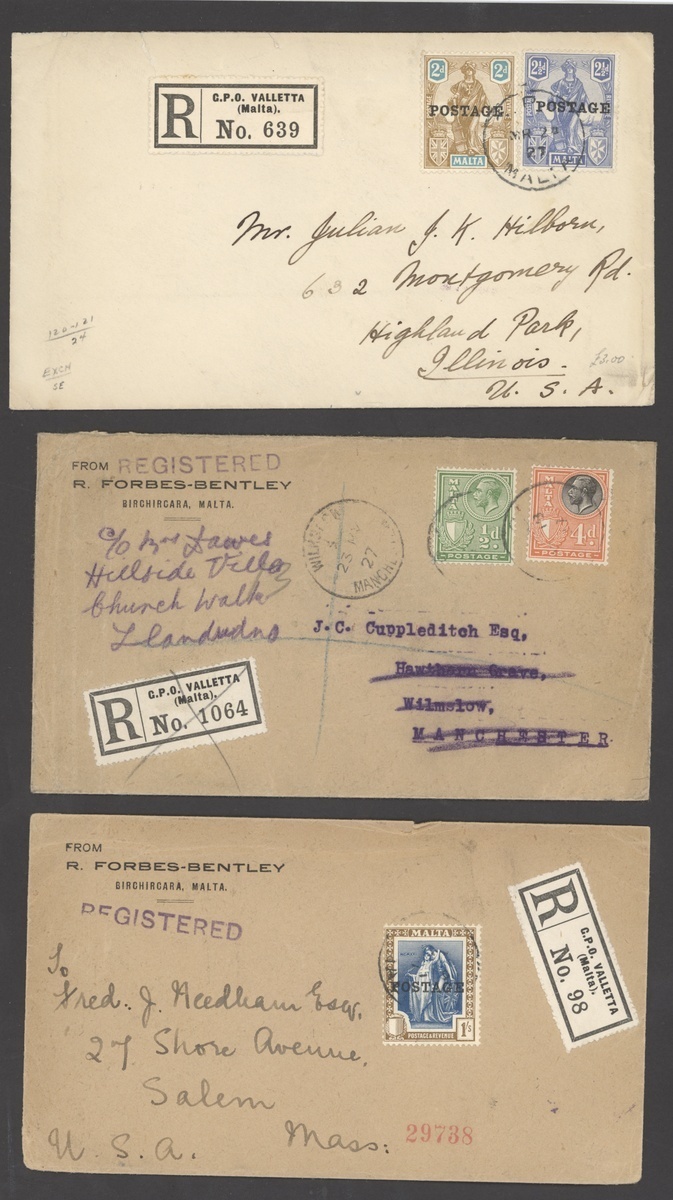 R
G.P.O. VALLETTA
(Malta).
No. 639
2d 2d
POSTAGE
MALTA
2½d 2½d
POSTAGE
MALTA
27
MALTA
Mr. Julian J. K. Hilborn,
632 Montgomery Rd.
Highland Park,
Illinois.
U. S. A.
120-121
24
EXCH
SE
£3.00
FROM REGISTERED
R. FORBES-BENTLEY
BIRCHIRCARA, MALTA.
MALTA
½d.
POSTAGE
MALTA
4d.
POSTAGE
27
c/o Mrs Dawes
Hillside Villa
Church Walk
Llandudno
J.C. Cuppleditch Esq,
Hawthorn Grave,
Wilmslow,
MANCHESTER.
R
G.P.O. VALLETTA
(Malta).
No. 1064
FROM
R. FORBES-BENTLEY
BIRCHIRCARA, MALTA.
REGISTERED
MALTA
POSTAGE
1/s
POSTAGE & REVENUE
R
G.P.O. VALLETTA
(Malta).
No. 98
To
Fred. J. Needham Esq,
27 Shore Avenue,
Salem
Mass:
U. S. A.
29738